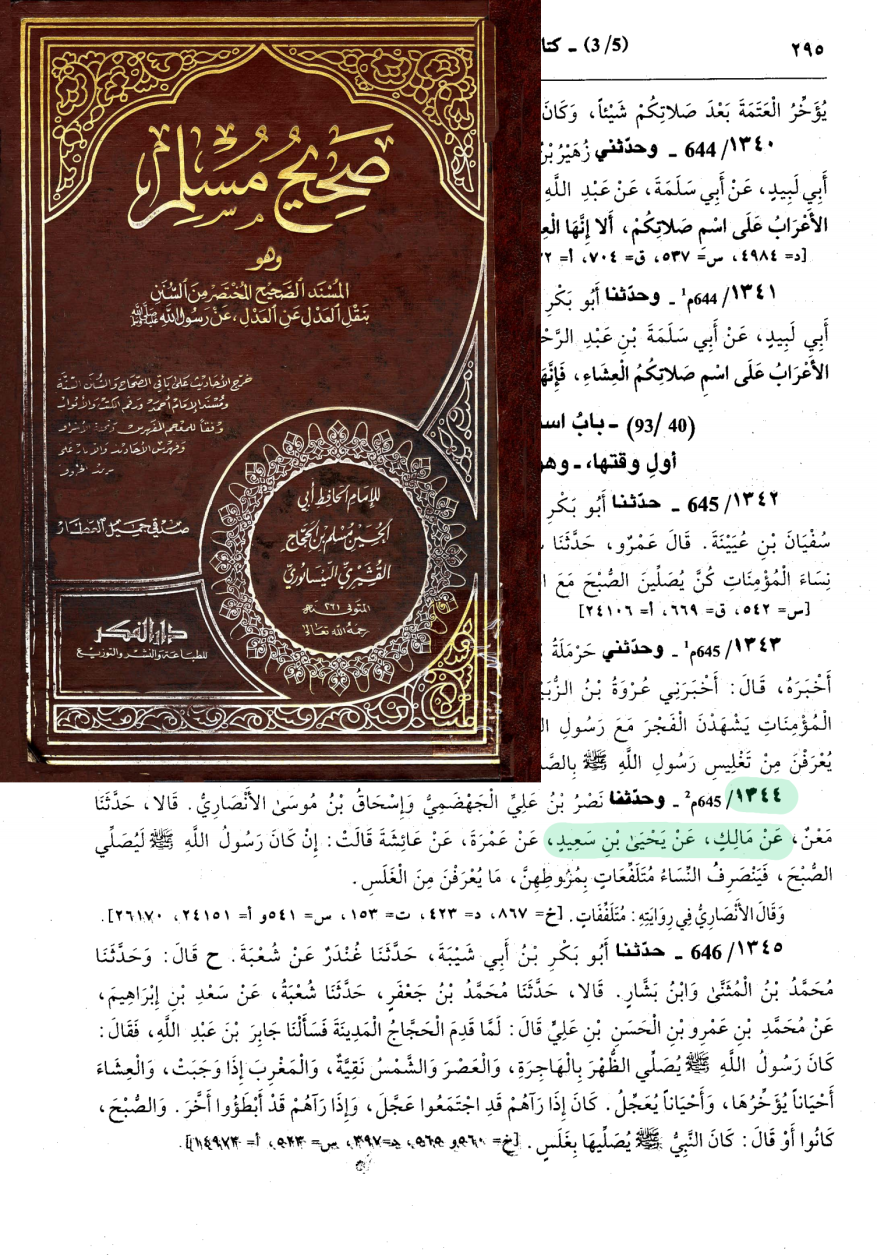 صَحِيحُ مُسْلِمٍ
وهو
المُسْنَد الصَّحِيح المُخْتَصَر مِنَ السُّنَن
بنَقْلِ العَدْلِ عَنِ العَدْلِ، عَنْ رَسُولِ اللَّه ﷺ
خرج الأحاديث على باقي الصحاح والسُّنن الستَّة
ومُسنَد الإمَام أحمَد ورقم الكتب والأبواب
وفقاً للمعجم المفهرس وتحفة الأشراف
صدقي جميل العطار
للإمَام الحَافِظ أبي
الحُسَين مُسْلم بْن الحَجَّاج
القُشَيْريّ النيسَابُوريّ
المتوفى ٢٦١ هـ
رحمَهُ الله تعَالىٰ
دار الفكر
للطباعة والنشر والتوزيع
(3/5) ـ كتا ٢٩٥
يُؤَخِّرُ الْعَتَمَةَ بَعْدَ صَلاتِكُمْ شَيْئاً، وَكَانَ
١٣٤٠/644 ـ وحدّثني زُهَيْرُ بْنُ
أَبِي لَبِيدٍ، عَنْ أَبِي سَلَمَةَ، عَنْ عَبْدِ اللَّهِ
الأَعْرَابُ عَلَى اسْمِ صَلاتِكُمْ، أَلا إِنَّهَا
[د= ٤٩٨٤، س= ٥٣٧، ق= ٧٠٤، أ=
١٣٤١/644م¹ ـ وحدّثنا أَبُو بَكْرِ
أَبِي لَبِيدٍ، عَنْ أَبِي سَلَمَةَ بْنِ عَبْدِ
الأَعْرَابُ عَلَى اسْمِ صَلاتِكُمُ الْعِشَاءِ،
(40 /93) ـ بابُ
أولِ وقتها، ـ
١٣٤٢/645 ـ حدّثنا أَبُو بَكْرِ
سُفْيَانَ بْنِ عُيَيْنَةَ. قَالَ عَمْرٌو، حَدَّثَنَا
نِسَاءَ الْمُؤْمِنَاتِ كُنَّ يُصَلِّينَ الصُّبْحَ مَعَ
[س= ٥٤٢، ق= ٦٦٩، أ= ٢٤١٠٦]
١٣٤٣/645م¹ ـ وحدّثني حَرْمَلَةُ
أَخْبَرَهُ، قَالَ: أَخْبَرَنِي عُرْوَةُ بْنُ الزُّبَيْ
الْمُؤْمِنَاتِ يَشْهَدْنَ الْفَجْرَ مَعَ رَسُولِ
يُعْرَفْنَ مِنْ تَغْلِيسِ رَسُولِ اللَّهِ ﷺ
١٣٤٤/645م² ـ وحدّثنا نَصْرُ بْنُ عَلِيٍّ الْجَهْضَمِيُّ وَإِسْحَاقُ بْنُ مُوسَىٰ الأَنْصَارِيُّ. قَالا، حَدَّثَنَا
مَعْنٌ، عَنْ مَالِكٍ، عَنْ يَحْيَىٰ بْنِ سَعِيدٍ، عَنْ عَمْرَةَ، عَنْ عَائِشَةَ قَالَتْ: إِنْ كَانَ رَسُولُ اللَّهِ ﷺ لَيُصَلِّي
الصُّبْحَ، فَيَنْصَرِفُ النِّسَاءُ مُتَلَفِّعَاتٍ بِمُرُوطِهِنَّ، مَا يُعْرَفْنَ مِنَ الْغَلَسِ.
وَقَالَ الأَنْصَارِيُّ فِي رِوَايَتِهِ: مُتَلَفِّفَاتٍ. [خ= ٨٦٧، د= ٤٢٣، ت= ١٥٣، س= ٥٤١و أ= ٢٤١٥١، ٢٦١٧٠].
١٣٤٥/646 ـ حدّثنا أَبُو بَكْرِ بْنُ أَبِي شَيْبَةَ، حَدَّثَنَا غُنْدَرٌ عَنْ شُعْبَةَ. ح قَالَ: وَحَدَّثَنَا
مُحَمَّدُ بْنُ الْمُثَنَّىٰ وَابْنُ بَشَّارٍ. قَالا، حَدَّثَنَا مُحَمَّدُ بْنُ جَعْفَرٍ، حَدَّثَنَا شُعْبَةُ، عَنْ سَعْدِ بْنِ إِبْرَاهِيمَ،
عَنْ مُحَمَّدِ بْنِ عَمْرِو بْنِ الْحَسَنِ بْنِ عَلِيٍّ قَالَ: لَمَّا قَدِمَ الْحَجَّاجُ الْمَدِينَةَ فَسَأَلْنَا جَابِرَ بْنَ عَبْدِ اللَّهِ، فَقَالَ:
كَانَ رَسُولُ اللَّهِ ﷺ يُصَلِّي الظُّهْرَ بِالْهَاجِرَةِ، وَالْعَصْرَ وَالشَّمْسُ نَقِيَّةٌ، وَالْمَغْرِبَ إِذَا وَجَبَتْ، وَالْعِشَاءَ
أَحْيَاناً يُؤَخِّرُهَا، وَأَحْيَاناً يُعَجِّلُ. كَانَ إِذَا رَآهُمْ قَدِ اجْتَمَعُوا عَجَّلَ، وَإِذَا رَآهُمْ قَدْ أَبْطَؤُوا أَخَّرَ. وَالصُّبْحَ،
كَانُوا أَوْ قَالَ: كَانَ النَّبِيُّ ﷺ يُصَلِّيهَا بِغَلَسٍ. [خ= ٥٦٠و ٥٦٥، د=٣٩٧، س= ٥٢٣، أ= ١٤٩٧٣].